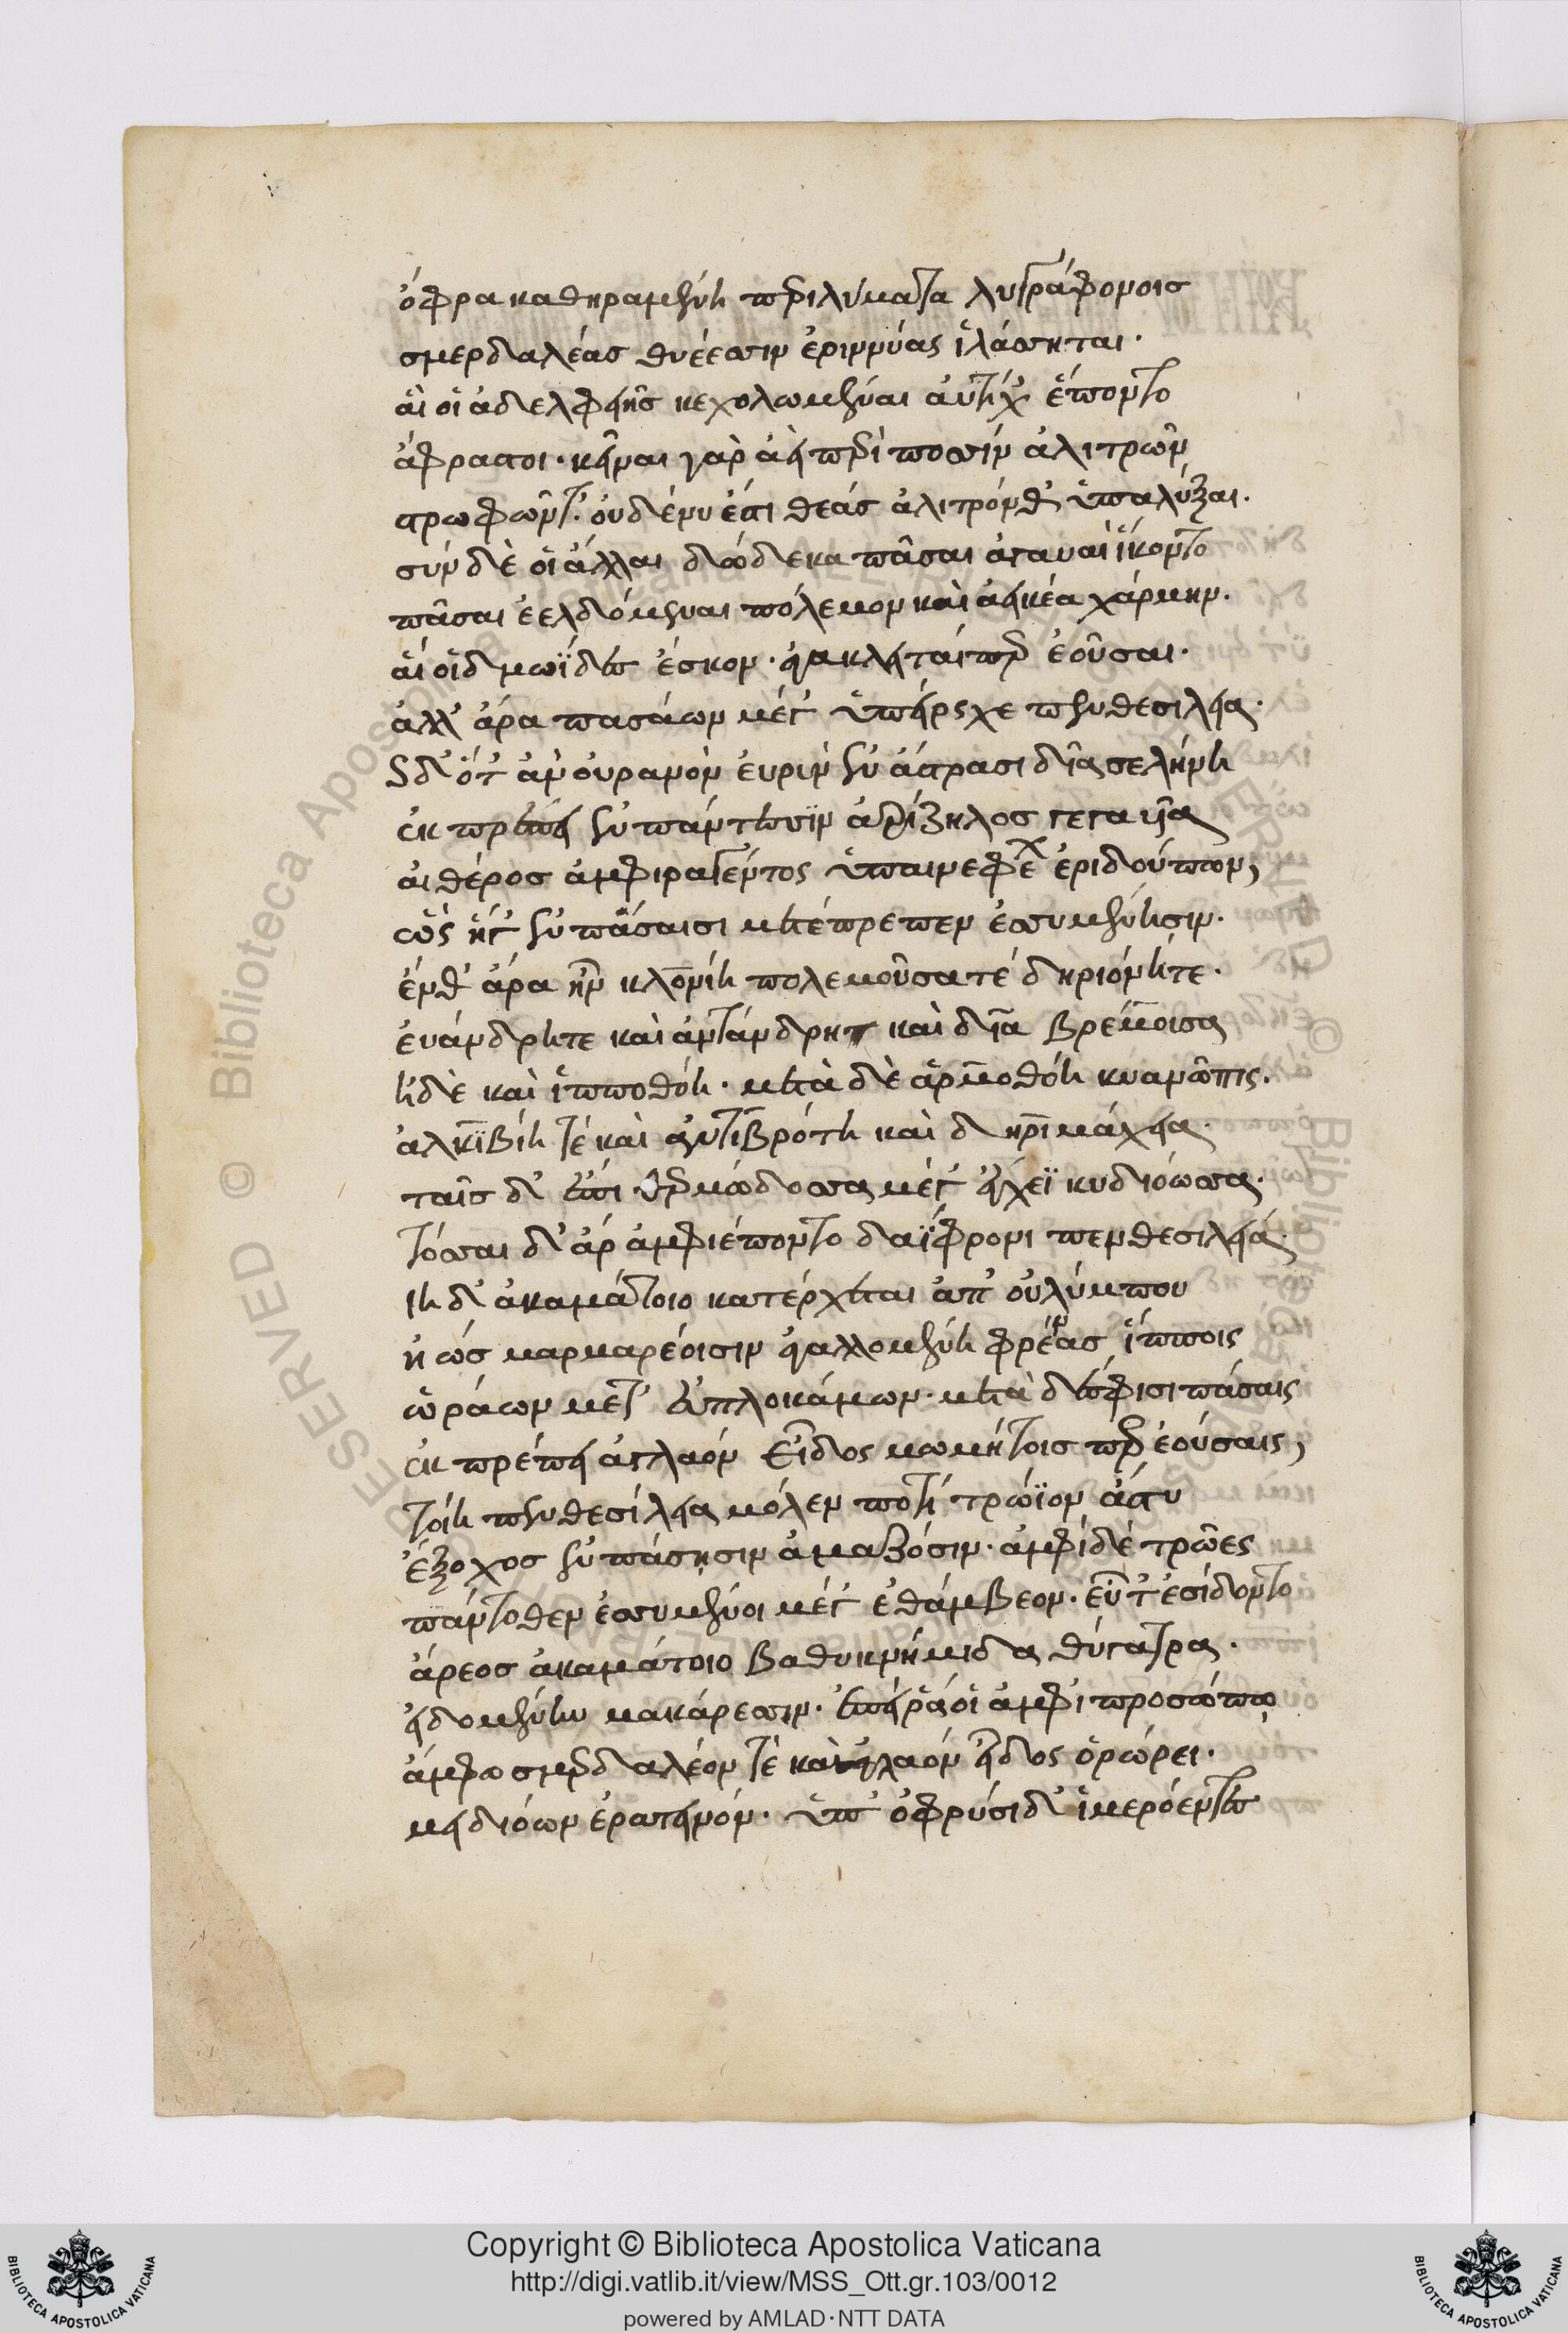 ὄφρα καθηραμένη περιλύματα λυγρὰ φόνοισ
σμερδαλέασ θυέεσσιν ἐριννύας ἱλάσσηται·
ἅι οἱ ἀδελφῆσ κεχολωμέναι ἀυτίχ' ἕποντο
ἄφραστοι· κεῖναι γὰρ ἀεὶ περὶ ποσσὶν ἀλιτρῶν
στρωφῶντ'· ὀυδένυ ἐστι θεάσ ἀλιτρόνθ' ὑπαλύξαι·
σύν δὲ οἱ ἄλλαι δώδεκα πᾶσαι ἀγαυαὶ ἵκοντο
πᾶσαι ἐελδόμεναι πόλεμον καὶ ἀεικέα χάρμην·
ἅι οἱ δμωΐδες ἔσκον· ἀγακλειτάιπερ ἐοῦσαι·
ἀλλ' ἄρα πασάων μέγ' ὑπείρεχε πενθεσιλεια·
ὡς δ' ὅτ' ἀν' ὀυρανὸν ἐυρὺν ἐν ἄστρασι δῖα σελήνη
ἐκπρέπει ἐν πάντεσσϊν ἀρίζηλοσ γεγαυῖα
ἀιθέροσ ἀμφιραγέντος ὑπαινεφέ ἐριδούπων,
ὣς ἥγ' ἐν πάσαισι μετέπρεπεν ἐσσυμένησιν·
ἔνθ' ἄρα ἦν κλονίη πολεμοῦσατέ δηριόνητε·
ἐυάνδρητε καὶ ἀντάνδρητ καὶ δῖα βρέμοισα
ἠδὲ καὶ ἱπποθόη· μετὰ δὲ ἁρμοθόη κυανῶπις·
ἀλκιβίη τέ καὶ ἀντιβρότη καὶ δηριμάχεια·
ταῖσ δ' ἐπι θερμώδοσσα μέγ' ἔγχεϊ κυδιόωσα·
τόσσαι δ' ἄρ ἀμφιέποντο δαΐφρονι πενθεσιλεία·
ιη δ' ἀκαμάτοιο κατέρχεται ἀπ' ὀυλύμπου
ἠώσ μαρμαρέοισιν ἀγαλλομένη φρένας ἵπποις
ὡράων μέτ' ἐυπλοκάμων· μετὰ δέσφισι πάσαις
ἐκπρέπει ἀγλαόν εἶδος μωμήτοισ περ ἐούσαις,
τοίη πενθεσίλεια μόλεν ποτί τρώϊον ἄστυ
ἔξοχοσ ἐν πάσησιν ἀμαζόσιν· ἀμφίδὲ τρῶες
πάντοθεν ἐσσυμένοι μέγ' ἐθάμβεον· εὖτ' ἐσίδοντο
ἄρεοσ ἀκαμάτοιο βαθυκνήμιδα θύγατρα·
εἰδομένην μακάρεσσιν· ἐπείρά οἱ ἀμφὶ προσώπῳ
ἄμφω σμερδαλέον τὲ καὶ ἀγλαόν εἶδος ὀρώρει·
μειδιόων ἐρατεινόν· ὑπ' ὀφρύσι δ' ἱμερόεντες
Copyright © Biblioteca Apostolica Vaticana
http://digi.vatlib.it/view/MSS_Ott.gr.103/0012
powered by AMLAD·NTT DATA